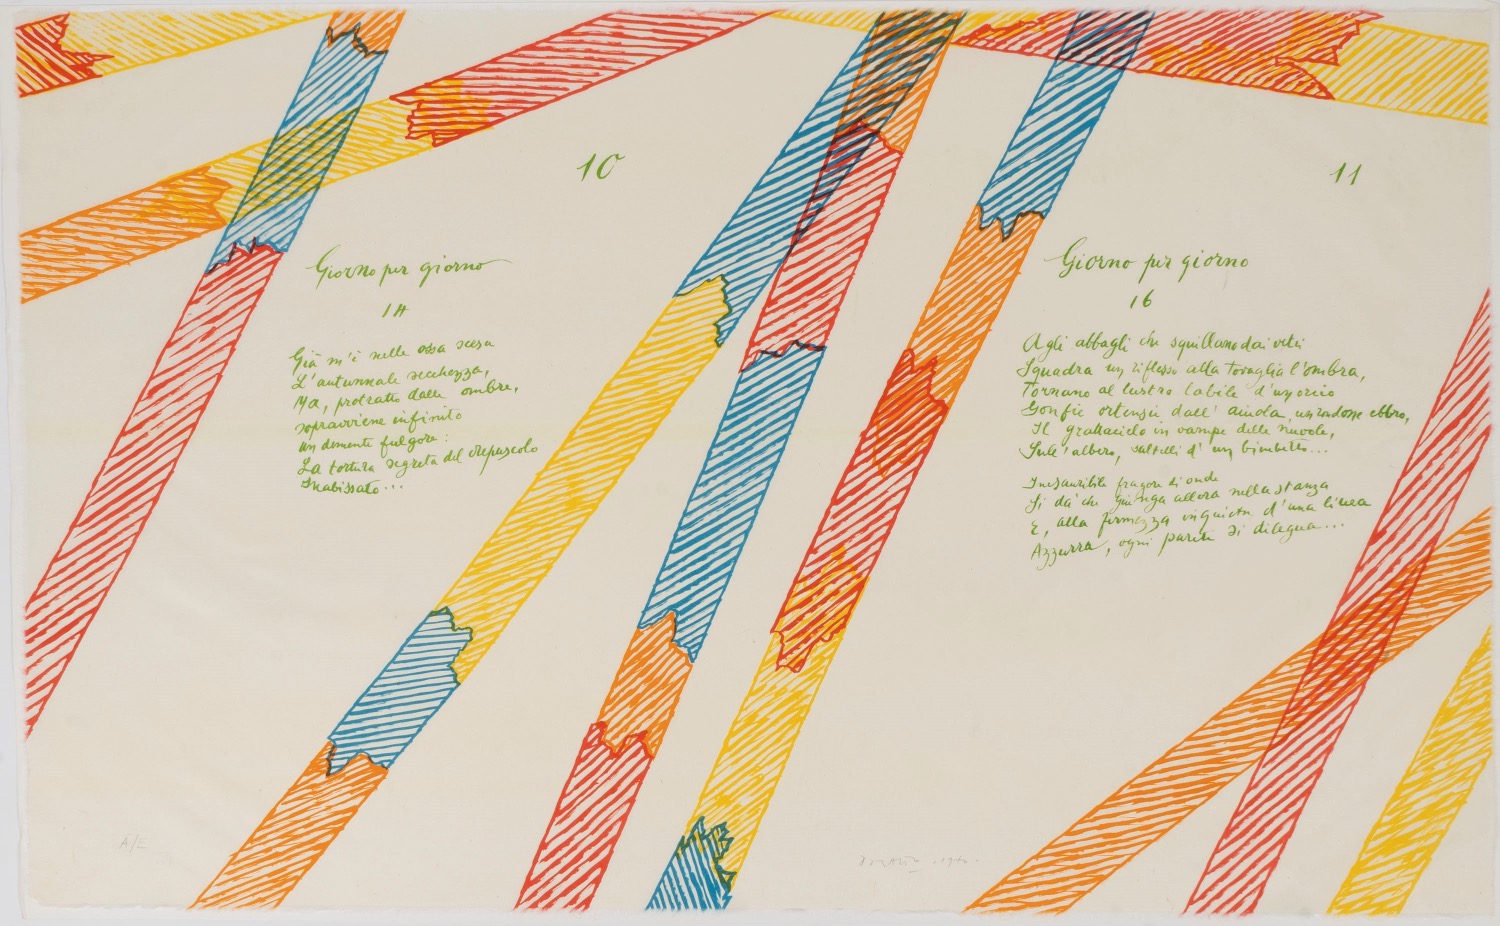 10
Giorno per giorno
14
Già m'è nelle ossa scesa
L'autunnale secchezza,
Ma, protratto dalle ombre,
sopravviene infinito
un demente fulgore:
La tortura segreta del crepuscolo
Inabissato...
11
Giorno per giorno
16
Agli abbagli che squillano dai vetri
Squadra un riflesso alla tovaglia l'ombra,
Tornano al lustro labile d'un orcio
Gonfie ortensie dall' aiuola, un rondone ebbro,
Il grattacielo in vampe delle nuvole,
Sull' albero, saltelli d' un bimbetto...
Inesauribile fragore di onde
Si dà che giunga allora nella stanza
E, alla fermezza inquieta d'una linea
Azzurra, ogni parete si dilegua...
A/E
Dorazio